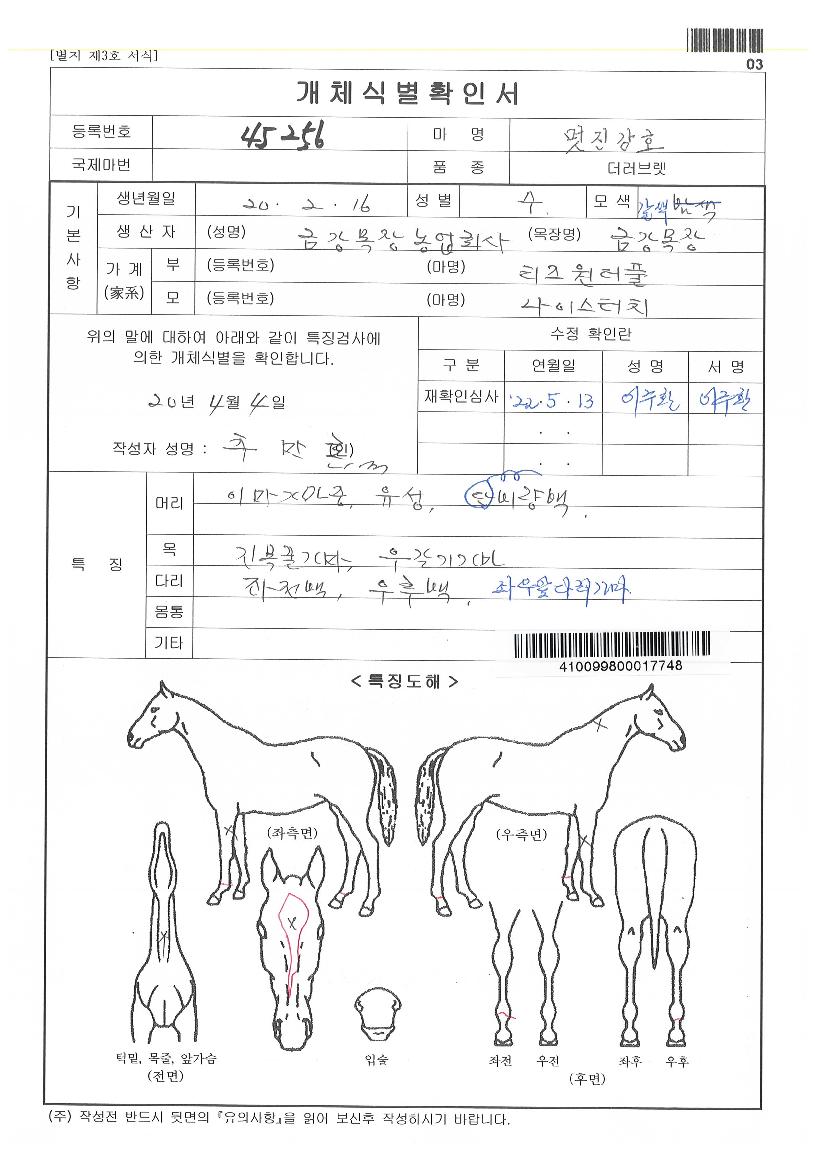 [별지 제3호 서식]
03
개체식별확인서
등록번호 45256 마 명 멋진강호
국제마번 품 종 더러브렛
기본사항
생년월일 20. 2. 16 성별 수 모색 갈색 밤색
생산자 (성명) 금강목장농업회사 (목장명) 금강목장
가계(家系) 부 (등록번호) (마명) 티즈원더풀
모 (등록번호) (마명) 나이스터치
위의 말에 대하여 아래와 같이 특징검사에
의한 개체식별을 확인합니다.
20년 4월 4일
작성자 성명 : (인)
수정 확인란
구 분 연월일 성 명 서 명
재확인심사 '22. 5. 13 이주환 이주환
. .
. .
특 징
머리 이마 중, 유성, 단비량백.
목
다리 좌전백, 우후백, 좌우앞다리기마
몸통
기타
410099800017748
< 특징도해 >
(좌측면) (우측면)
턱밑, 목줄, 앞가슴
(전면)
입술
좌전 우전 좌후 우후
(후면)
(주) 작성전 반드시 뒷면의 『유의사항』을 읽어 보신후 작성하시기 바랍니다.